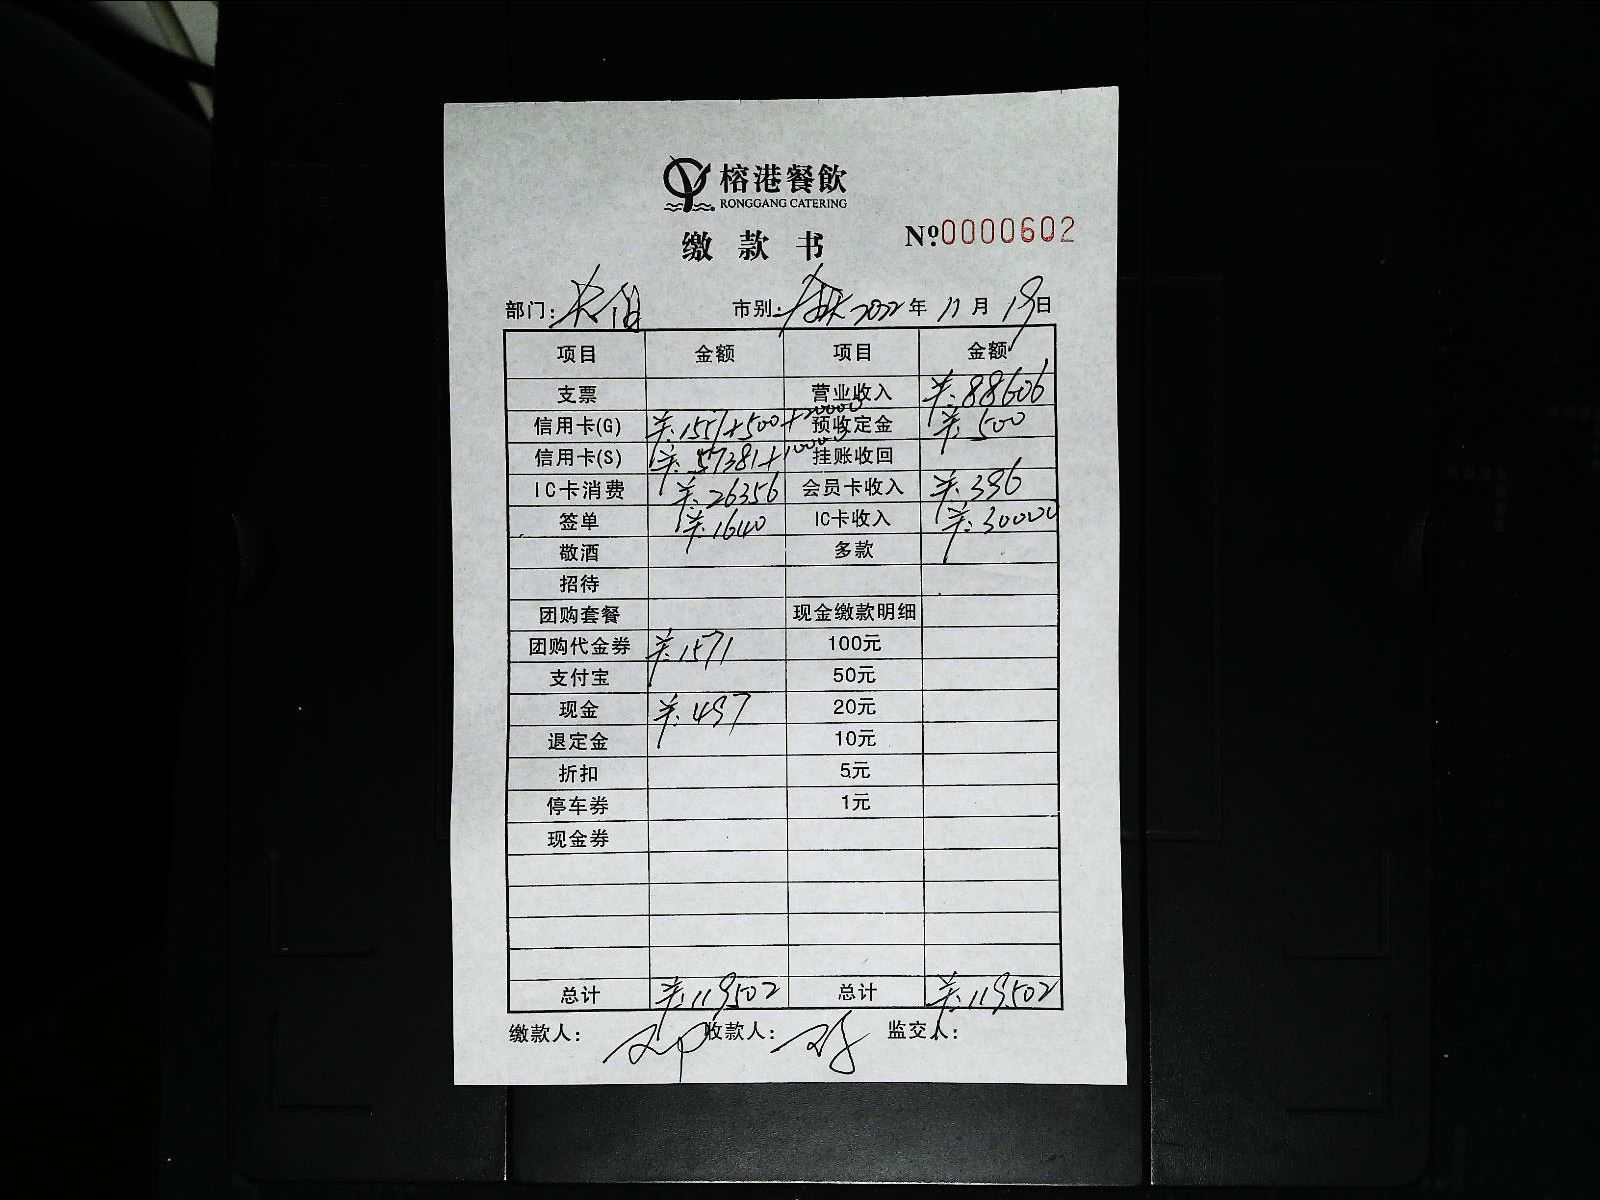 榕港餐飲
RONGGANG CATERING
缴款书 Nº0000602
部门: 市别: 2022年11月19日
项目 金额 项目 金额
支票 营业收入 ¥:88606
信用卡(G) ¥:1557+500+20000 预收定金 ¥:500
信用卡(S) ¥:57381+10000 挂账收回
IC卡消费 ¥:26356 会员卡收入 ¥:396
签单 ¥:1640 IC卡收入 ¥:30000
敬酒 多款
招待
团购套餐 现金缴款明细
团购代金券 ¥:1571 100元
支付宝 50元
现金 ¥:497 20元
退定金 10元
折扣 5元
停车券 1元
现金券
总计 ¥:119502 总计 ¥:119502
缴款人: 收款人: 监交人: